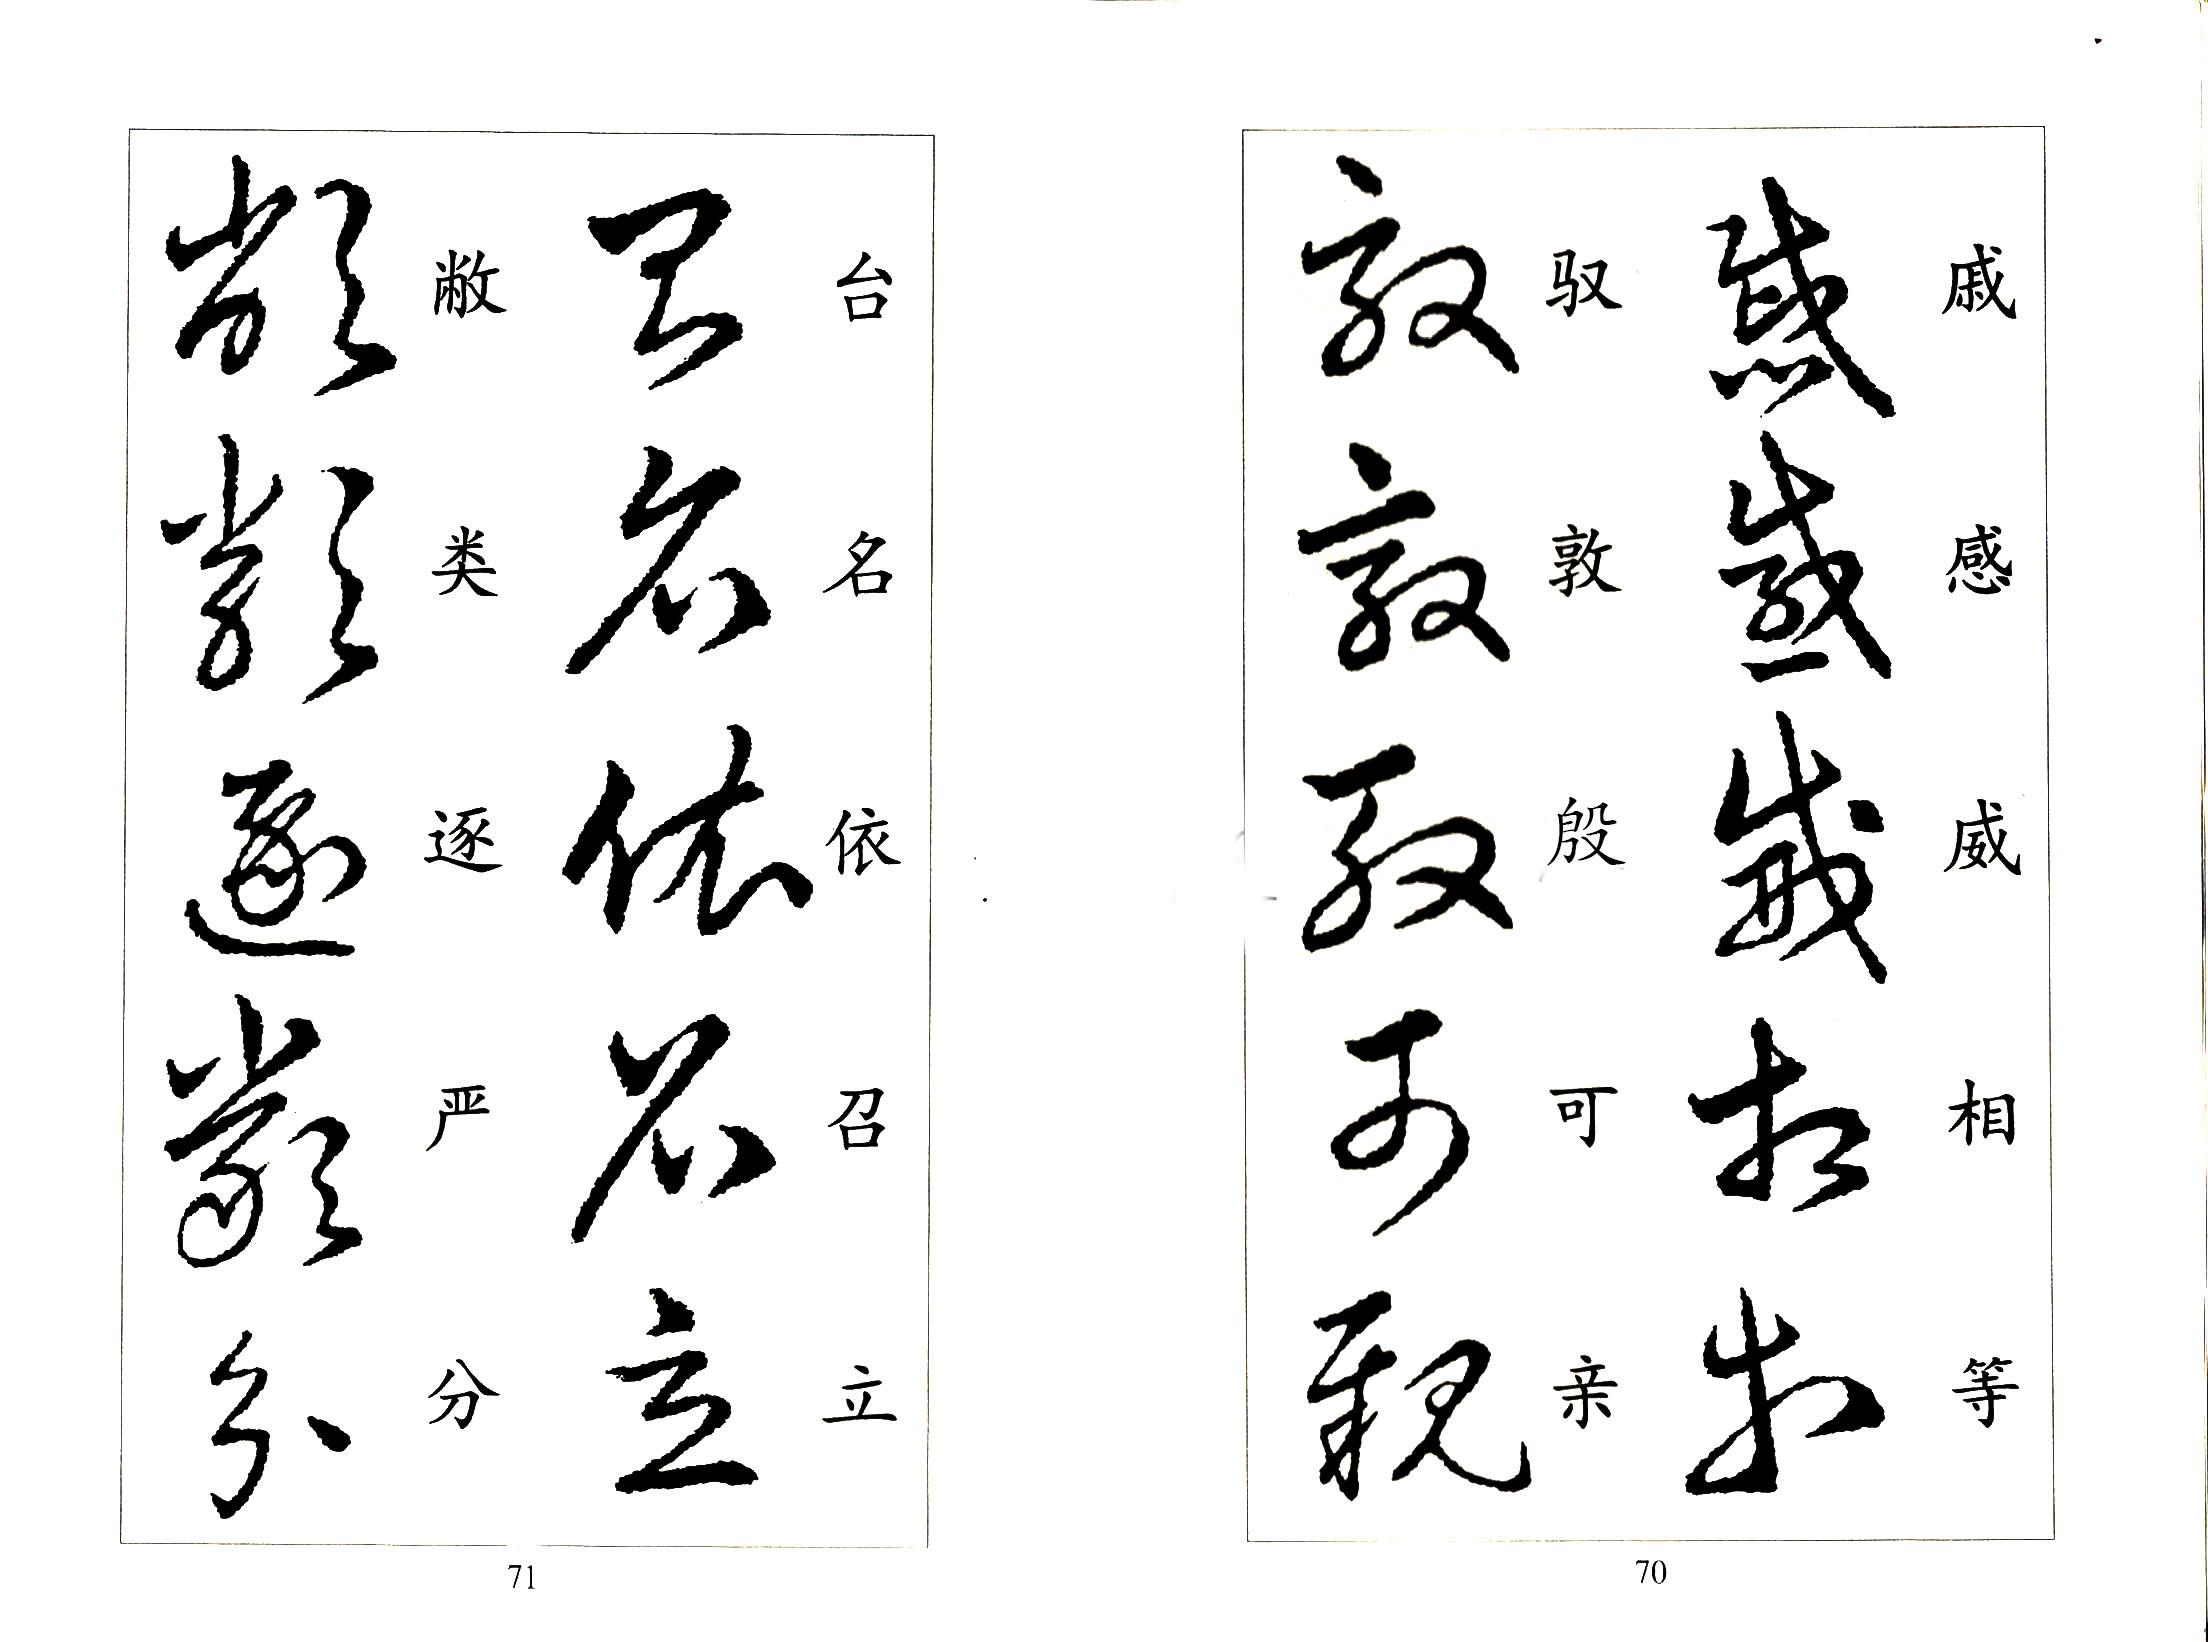 戚感威相等
驭敦殷可亲
70
台名依召立
敝类逐严分
71